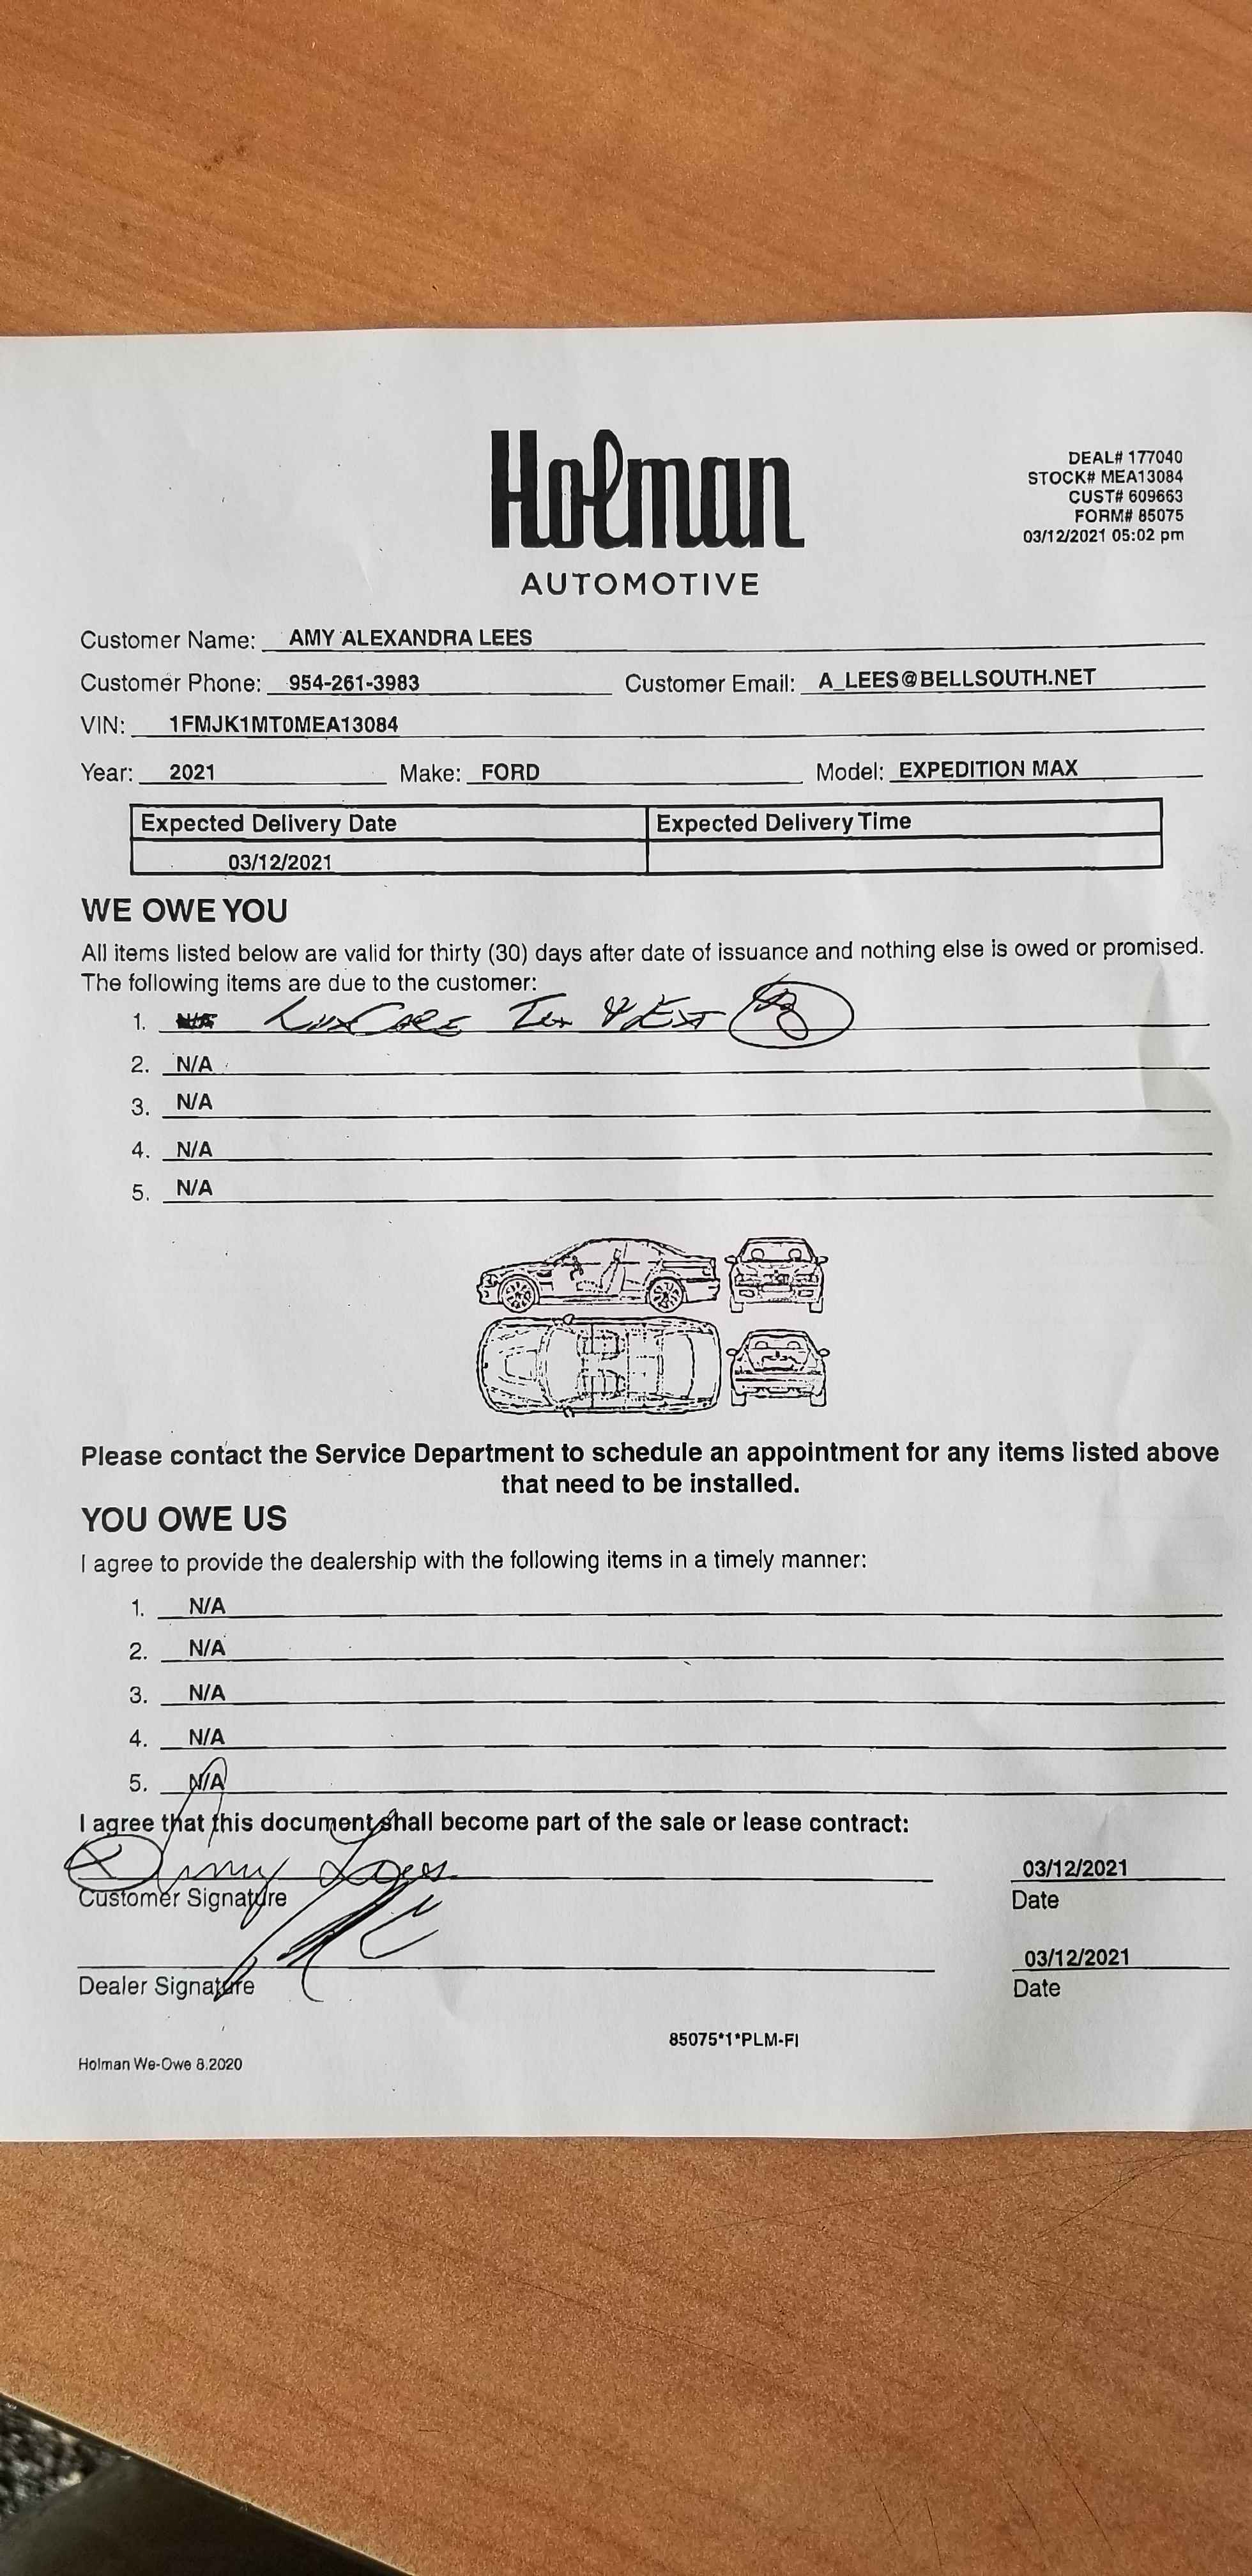 Holman
AUTOMOTIVE
DEAL# 177040
STOCK# MEA13084
CUST# 609663
FORM# 85075
03/12/2021 05:02 pm
Customer Name: AMY ALEXANDRA LEES
Customer Phone: 954-261-3983 Customer Email: A_LEES@BELLSOUTH.NET
VIN: 1FMJK1MT0MEA13084
Year: 2021 Make: FORD Model: EXPEDITION MAX
Expected Delivery Date Expected Delivery Time
03/12/2021
WE OWE YOU
All items listed below are valid for thirty (30) days after date of issuance and nothing else is owed or promised.
The following items are due to the customer:
1. N/A LUXCARE Int & Ext
2. N/A
3. N/A
4. N/A
5. N/A
Please contact the Service Department to schedule an appointment for any items listed above
that need to be installed.
YOU OWE US
I agree to provide the dealership with the following items in a timely manner:
1. N/A
2. N/A
3. N/A
4. N/A
5. N/A
I agree that this document shall become part of the sale or lease contract:
Amy Lees 03/12/2021
Customer Signature Date
03/12/2021
Dealer Signature Date
85075*1*PLM-FI
Holman We-Owe 8.2020